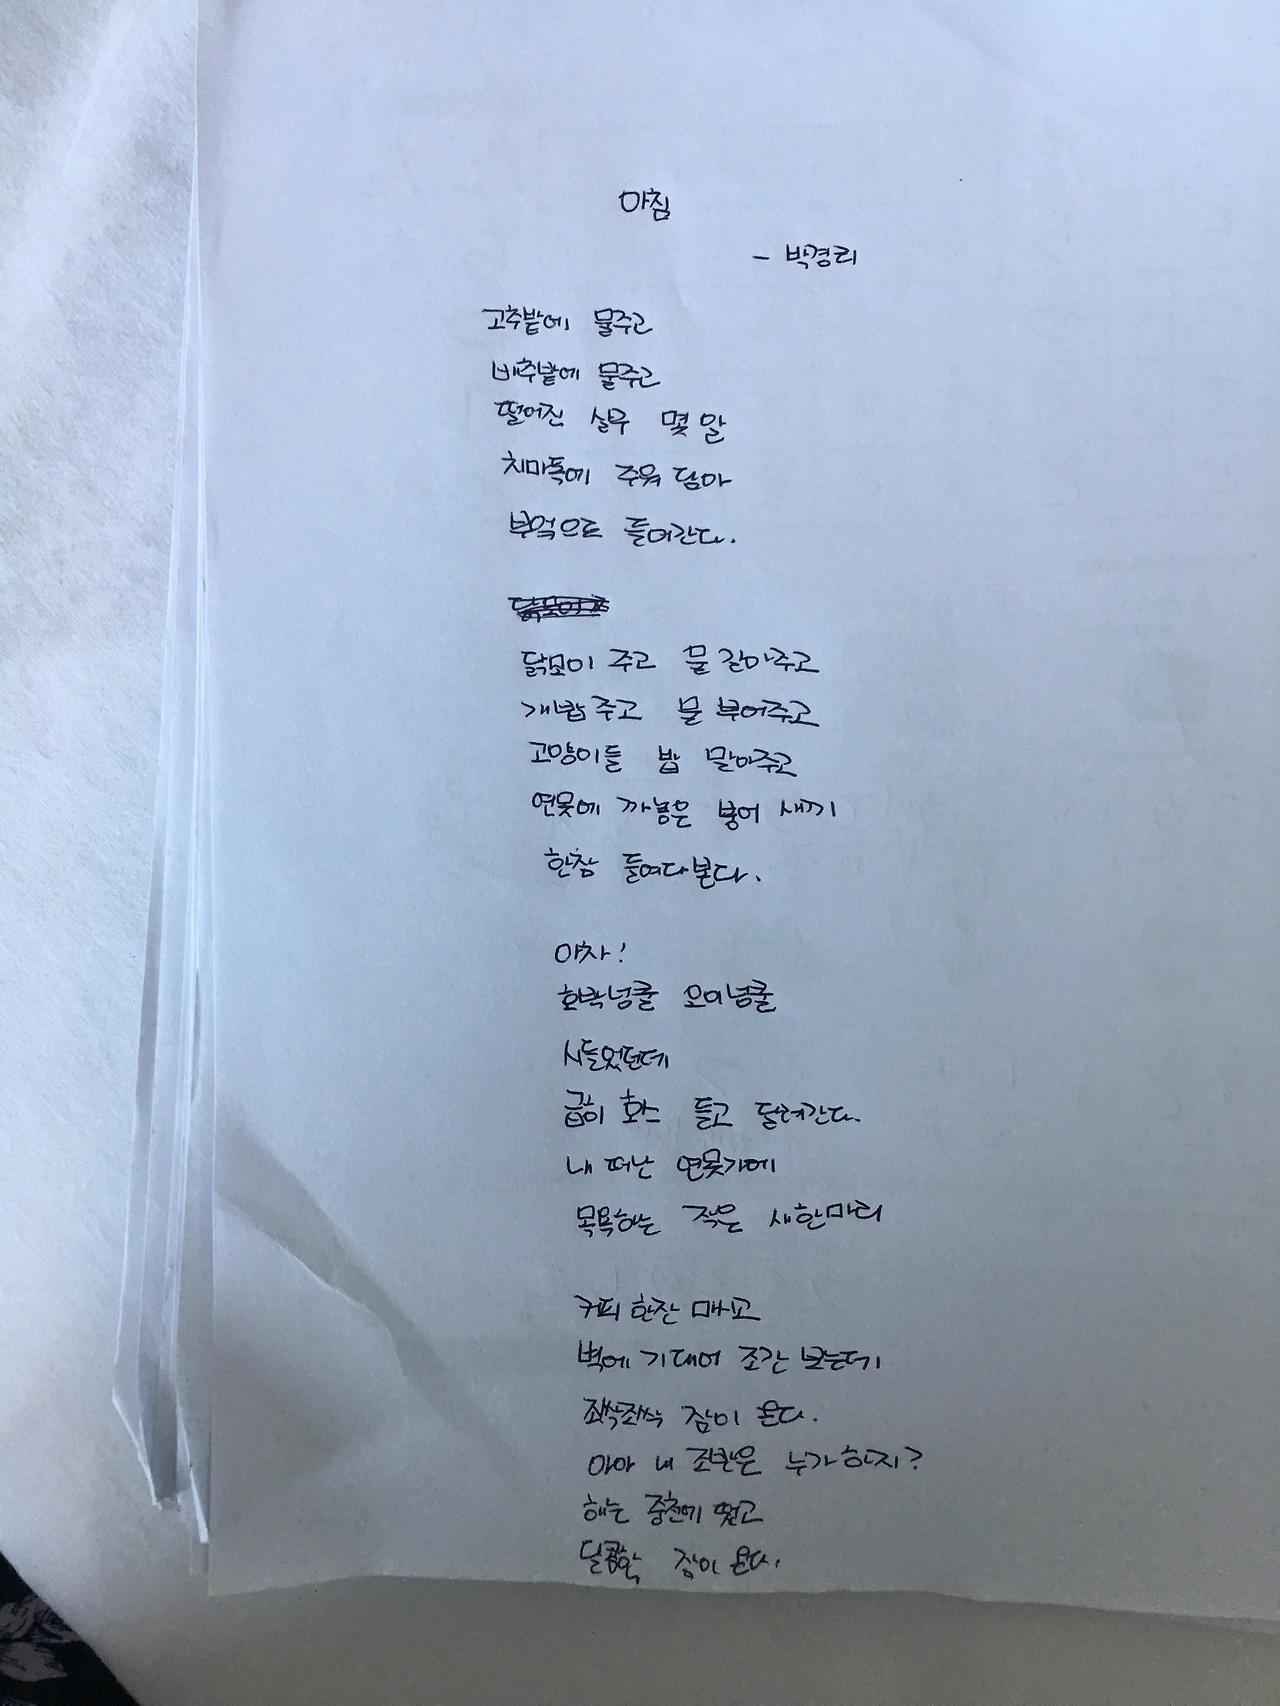 아침
- 박경리
고추밭에 물주고
배추밭에 물주고
떨어진 살구 몇 알
치마폭에 주워 담아
부엌으로 들어간다.
닭모이 주고 물 갈아주고
개밥 주고 물 부어주고
고양이들 밥 말아주고
연못에 까놓은 붕어 새끼
한참 들여다본다.
아차!
호박넝쿨 오이넝쿨
시들었던데
급히 호스 들고 달려간다.
내 떠난 연못가에
목욕하는 작은 새한마리
커피 한잔 마시고
벽에 기대어 조간 보는데
조간 잠이 온다.
아아 내 조반은 누가하지?
해는 중천에 떴고
달콤한 잠이 온다.